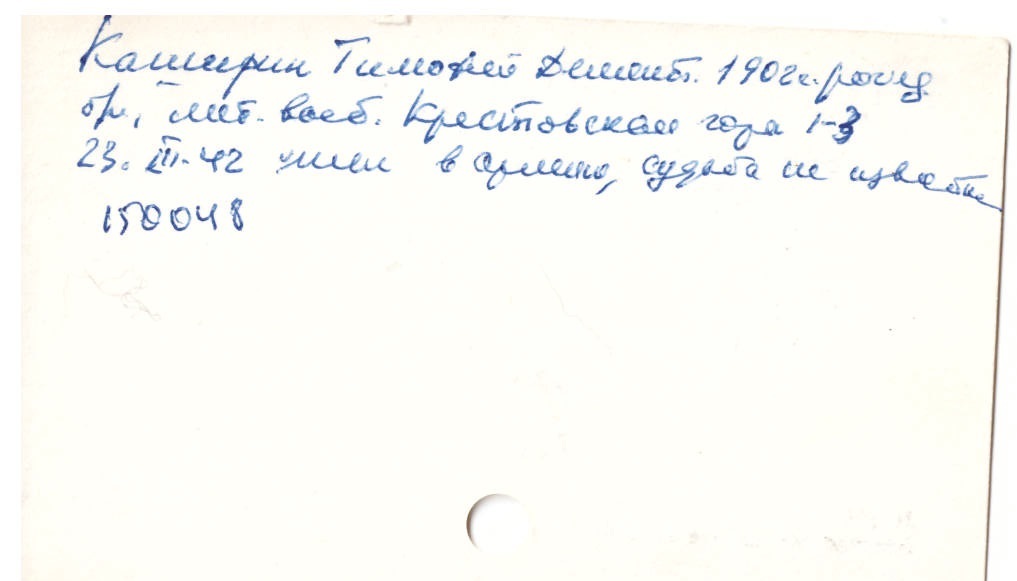 Каширин Тимофей Демент. 1902 г. рожд.
бр., мет. вооб. Крестовская гора 1-3
23. III-42 ушел в армию, судьба не известна
150048